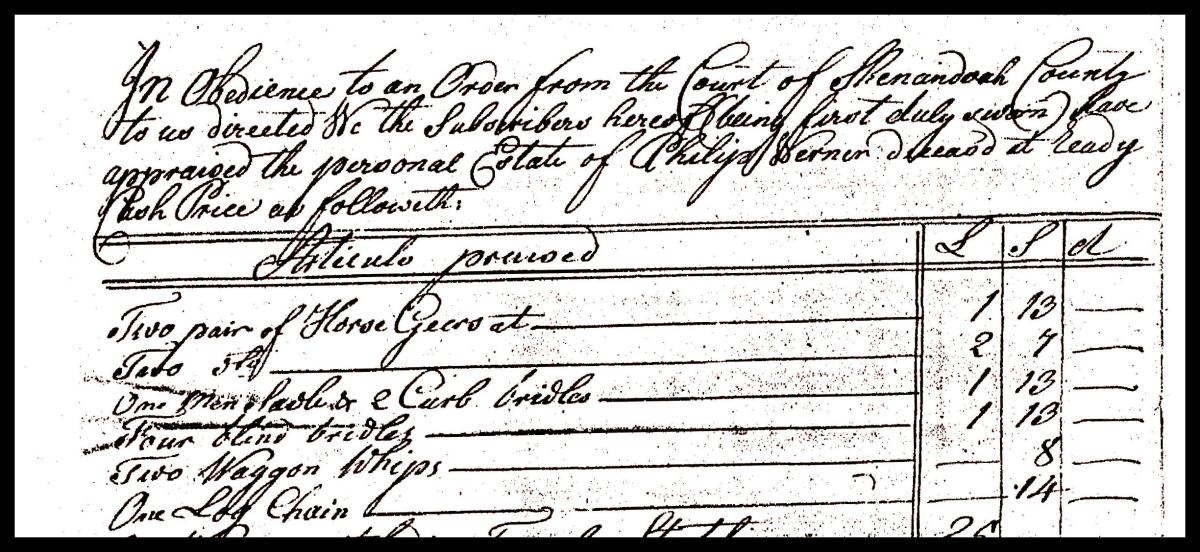 In Obedience to an Order from the Court of Shenandoah County
to us directed We the Subscribers hereof (being first duly sworn) have
appraised the personal Estate of Philip Werner deceasd at ready
Cash Price as followeth:
Articuls praised £ S d
Two pair of Horse Geers at — 1 13 —
Two do — 2 7 —
One Men sadle & 2 Curb bridles — 1 13 —
Four blind bridles — 1 13 —
Two Waggon Whips — — 8 —
One Log Chain — — 14 —